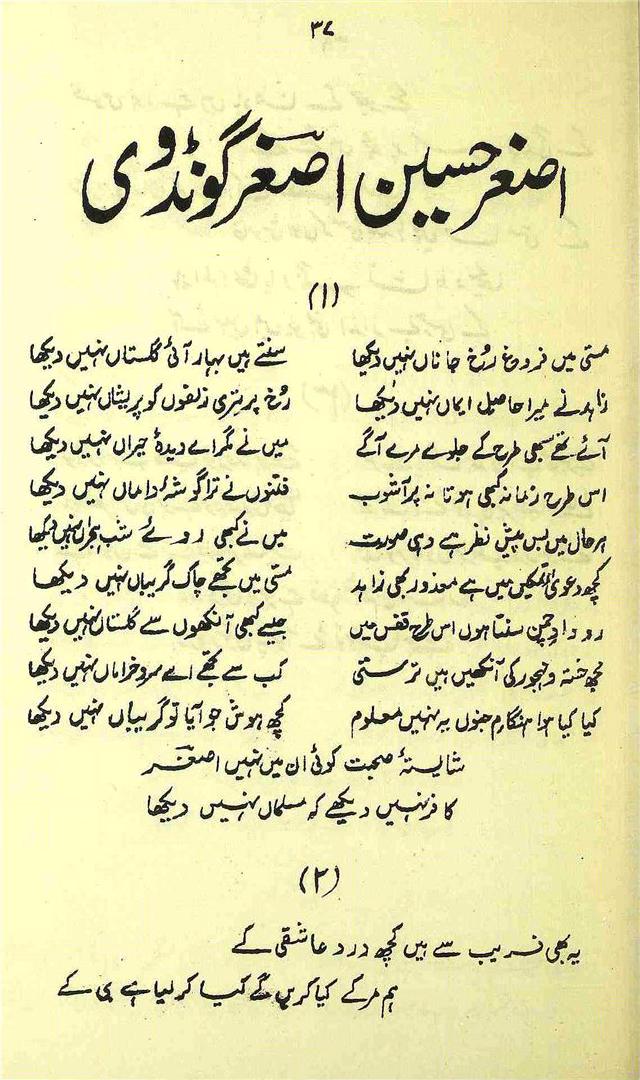 ۳۷
اصغر حسین اصغر گونڈوی
(۱)
مستی میں فروغِ رخِ جاناں نہیں دیکھا سنتے ہیں بہار آئی گلستاں نہیں دیکھا
زاہد نے میرا حاصلِ ایماں نہیں دیکھا رخ پر تری زلفوں کو پریشاں نہیں دیکھا
آئے تھے سبھی طرح کے جلوے مرے آگے میں نے مگر اے دیدۂ حیراں نہیں دیکھا
اس طرح زمانہ کبھی ہوتا نہ پرآشوب فتنوں نے ترا گوشۂ داماں نہیں دیکھا
ہر حال میں بس پیشِ نظر ہے وہی صورت میں نے کبھی روئے شبِ ہجراں نہیں دیکھا
کچھ دعویٔ تمکیں میں ہے معذور بھی زاہد مستی میں تجھے چاک گریباں نہیں دیکھا
رودادِ چمن سنتا ہوں اس طرح قفس میں جیسے کبھی آنکھوں سے گلستاں نہیں دیکھا
مجھ خستہ و مہجور کی آنکھیں ہیں ترستی کب سے تجھے اے سروِ خراماں نہیں دیکھا
کیا کیا ہوا ہنگامِ جنوں یہ نہیں معلوم کچھ ہوش جو آیا تو گریباں نہیں دیکھا
شایستۂ صحبت کوئی ان میں نہیں اصغر
کافر نہیں دیکھے کہ مسلماں نہیں دیکھا
(۲)
یہ بھی فریب سے ہیں کچھ درد عاشقی کے
ہم مر کے کیا کریں گے کیا کر لیا ہے جی کے